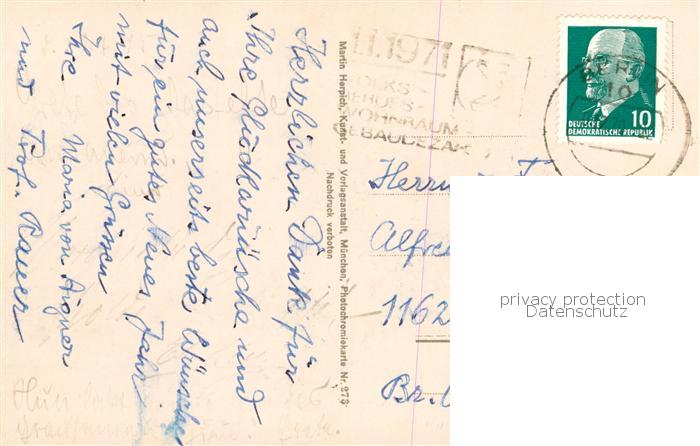 Herzlichen Dank für
Ihre Glückwünsche und
auch unserseits beste Wünsche
für ein gutes Neues Jahr
mit vielen Grüssen
Ihre Maria von Aigner
und Prof. Rauer
Martin Herpich, Kunst- und Verlagsanstalt, München, Photochromiekarte Nr. 273
Nachdruck verboten
1.1.1971
VOLKS-
BERUFS-
WOHNRAUM-
GEBÄUDEZÄH
BERLIN
10
10
DEUTSCHE
DEMOKRATISCHE REPUBLIK
Herrn
Alfre
1162
Br.
privacy protection
Datenschutz